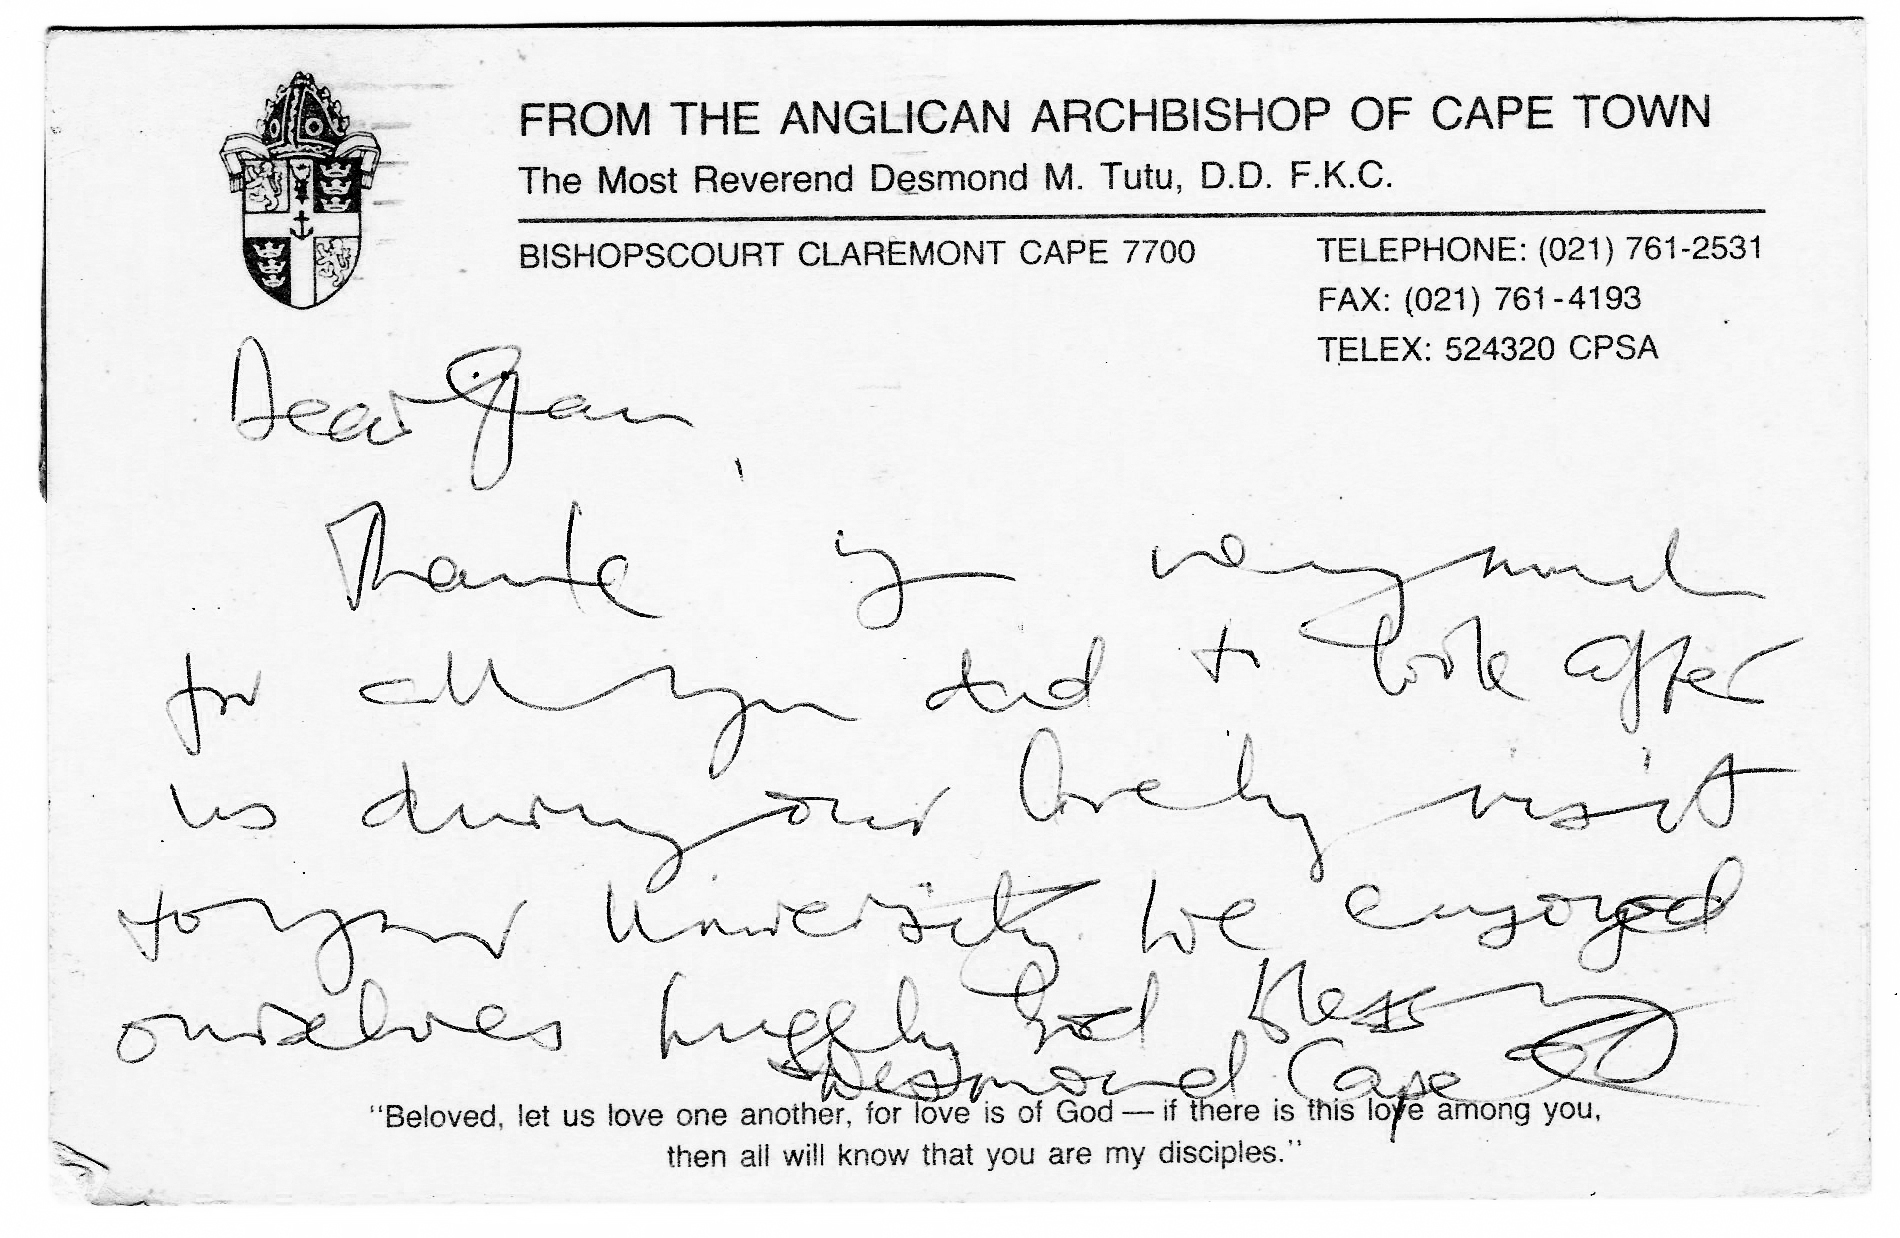 FROM THE ANGLICAN ARCHBISHOP OF CAPE TOWN
The Most Reverend Desmond M. Tutu, D.D. F.K.C.
BISHOPSCOURT CLAREMONT CAPE 7700
TELEPHONE: (021) 761-2531
FAX: (021) 761-4193
TELEX: 524320 CPSA
Dear
Thank you very much
for all you did to look after
us during our lovely visit
to your University. We enjoyed
ourselves hugely God bless you
Desmond Cape
"Beloved, let us love one another, for love is of God — if there is this love among you,
then all will know that you are my disciples."